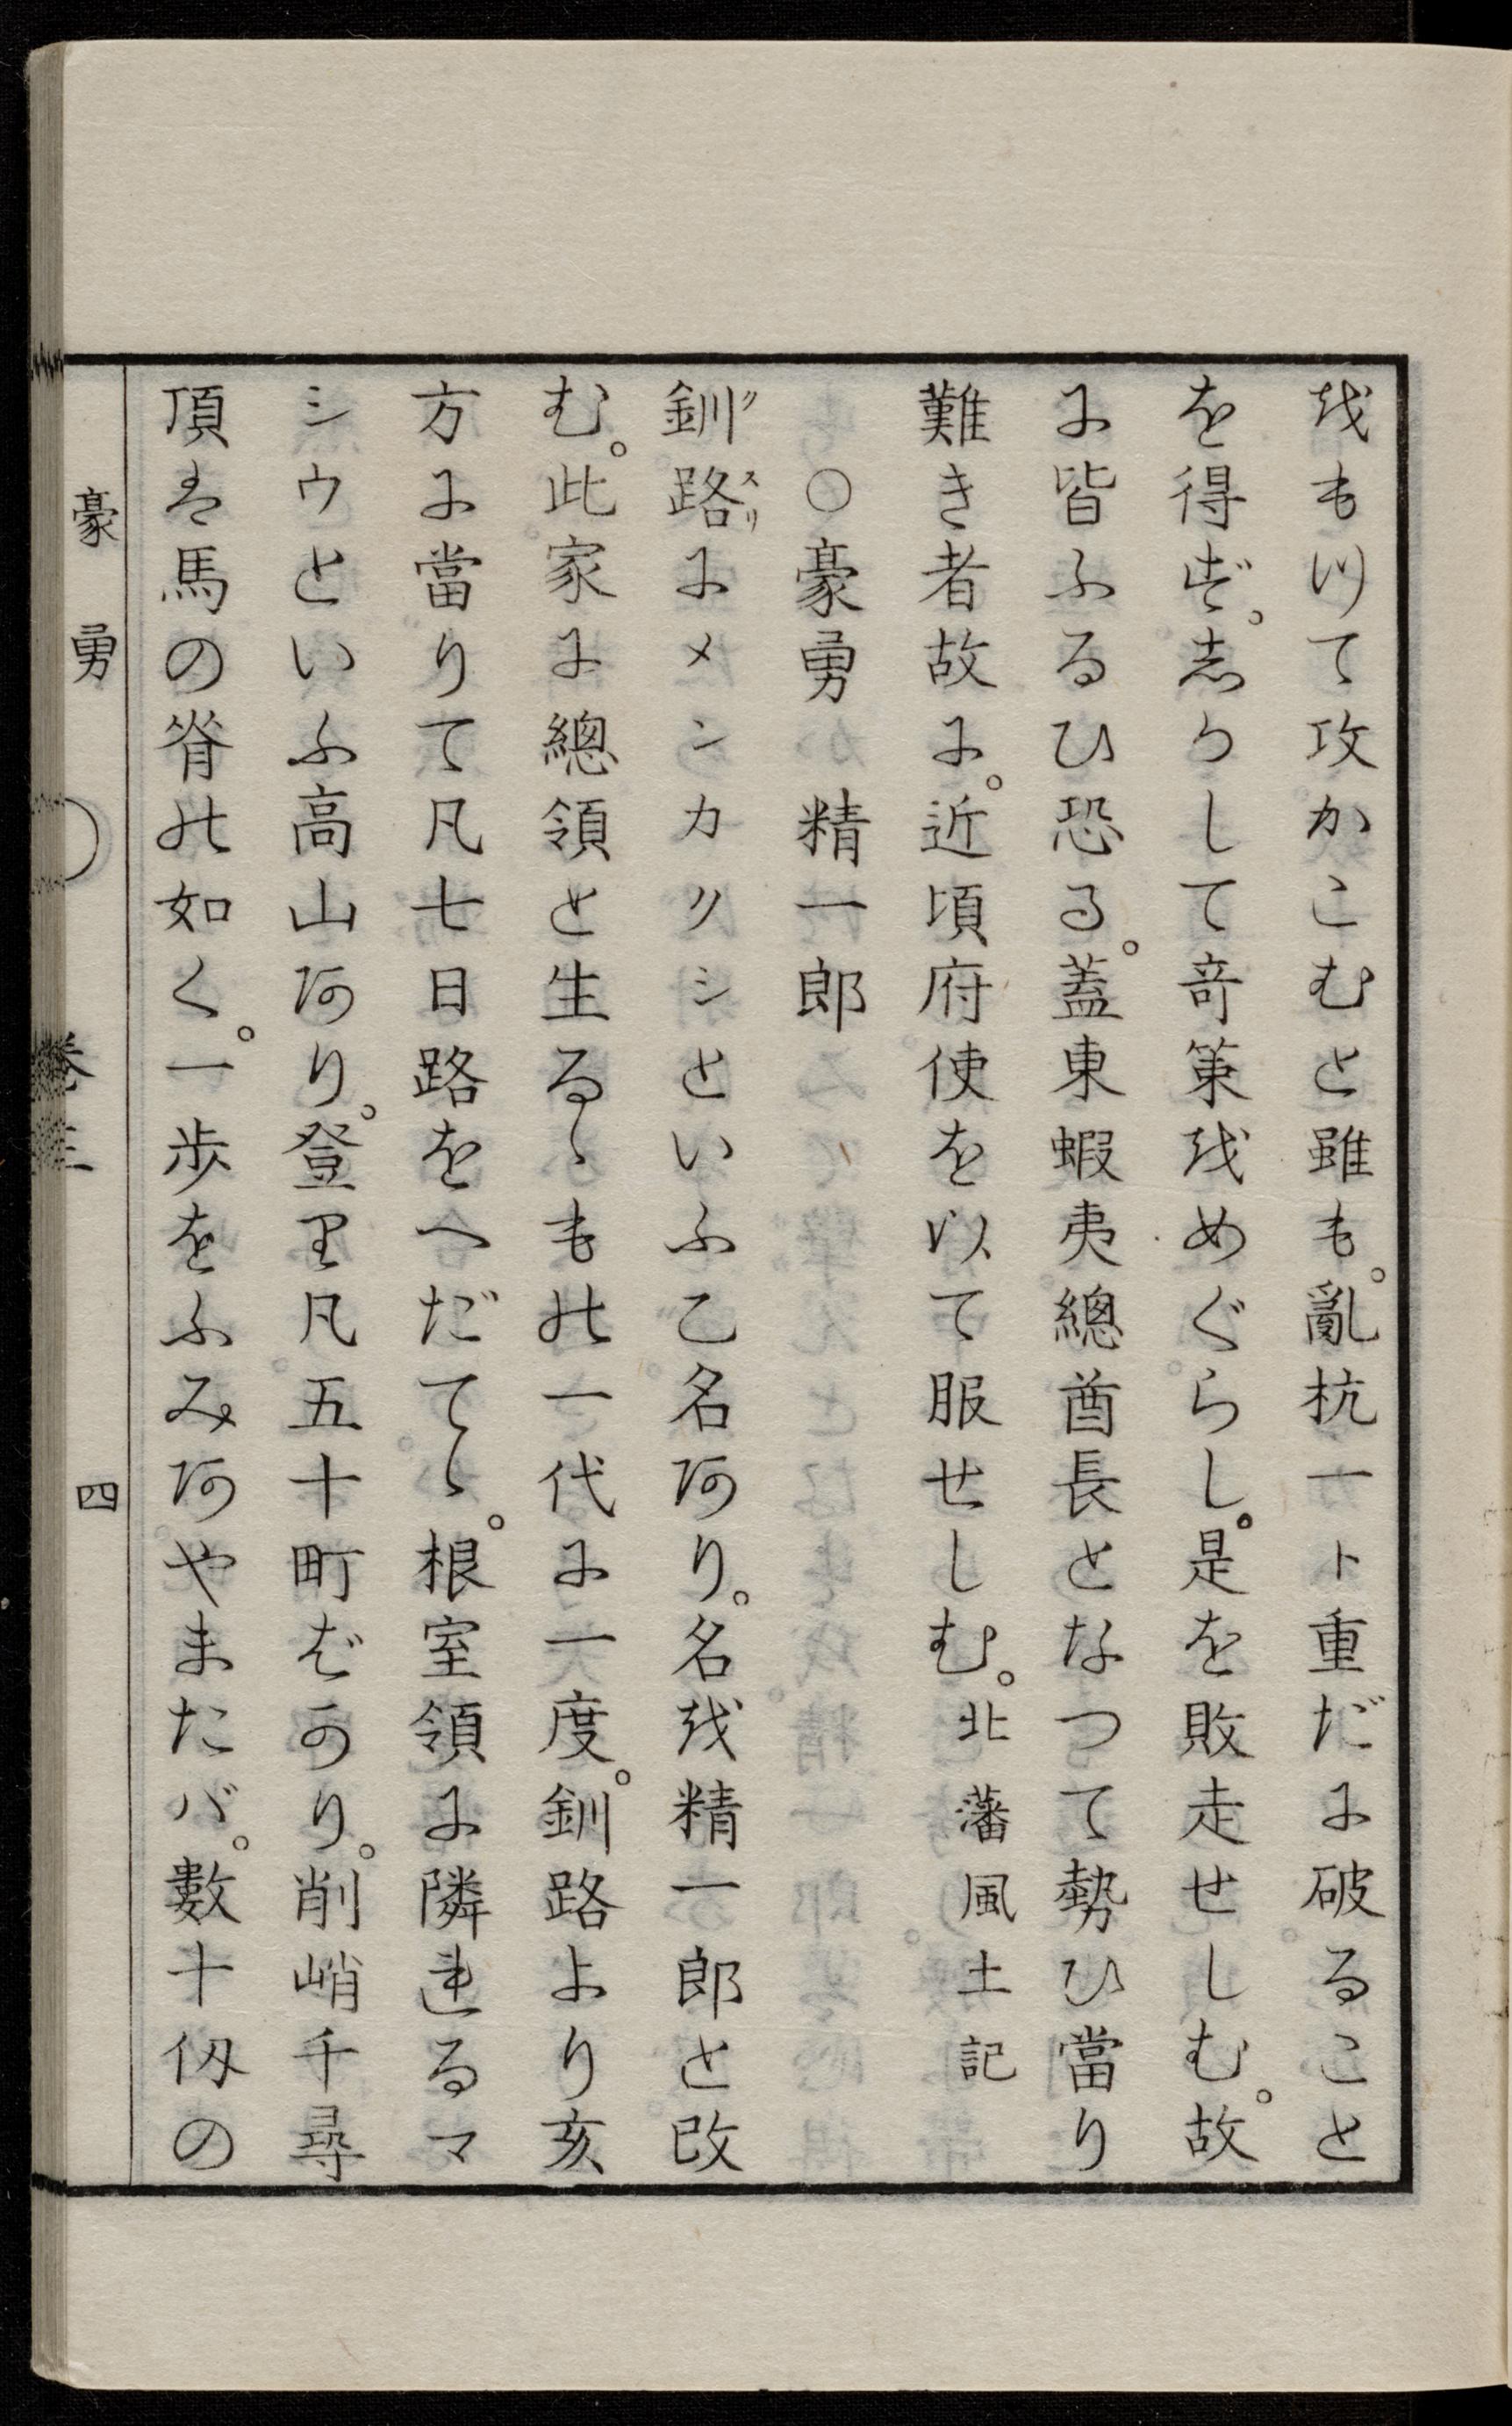 をもつて攻かこむと雖も。亂杭一ト重だに破ること
を得ず。志かして奇策をめぐらし。是を敗走せしむ。故
に皆ふるひ恐る。蓋東蝦夷總酋長となつて勢ひ當り
難き者故に。近頃府使を以て服せしむ。北藩風土記
○豪勇　精一郎
釧路にメンカクシといふ乙名あり。名を精一郎と改
クスリ
む。此家に總領と生るゝもの一代に一度。釧路より亥
方に當りて凡七日路をへだてゝ。根室領に隣れるマ
シウといふ高山あり。登り凡五十町ばかり。削峭千尋
頂は馬の脊の如く。一歩をふみあやまたバ。數十仭の
豪勇　卷三　四